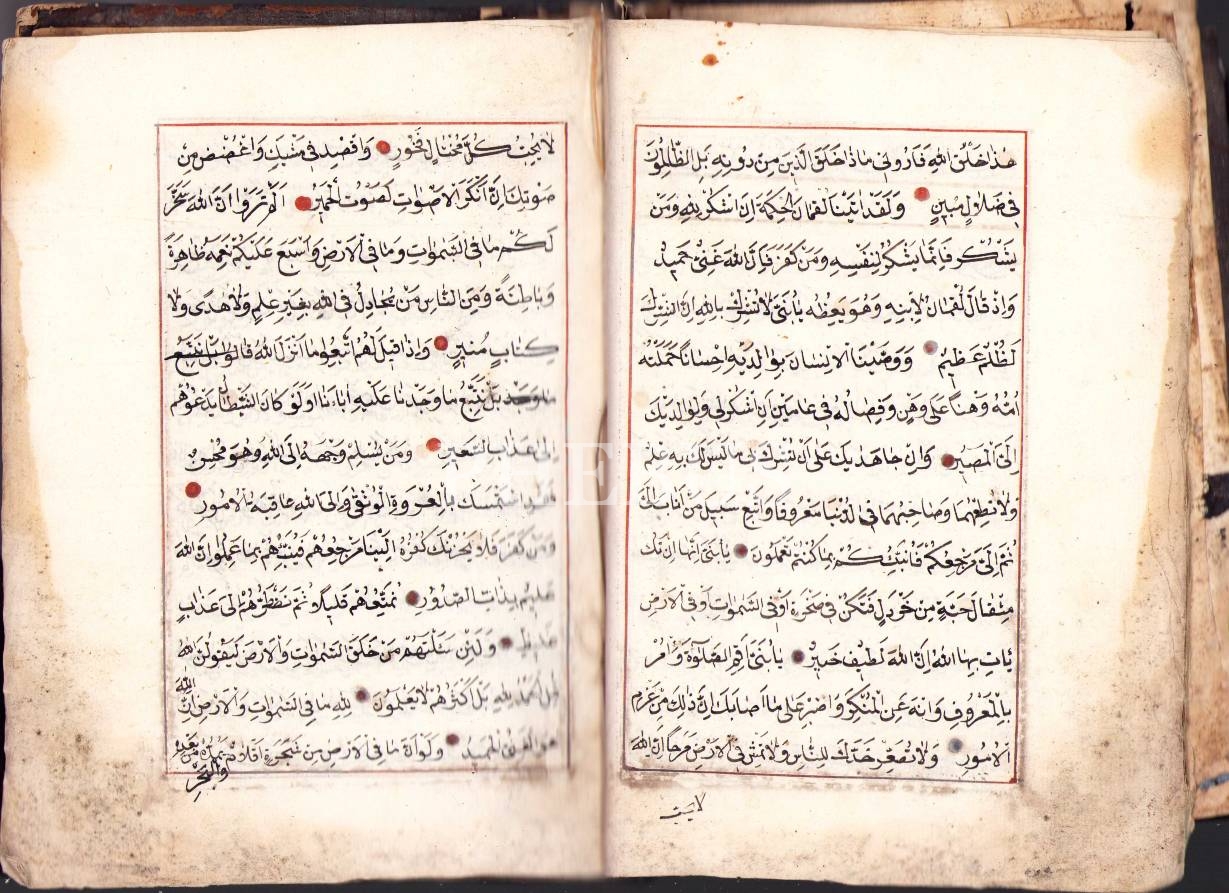 هٰذَا خَلْقُ اللهِ فَاَرُونِى مَاذَا خَلَقَ الَّذِينَ مِنْ دُونِهِ بَلِ الظَّالِمُونَ
فِى ضَلَالٍ مُبِينٍ وَلَقَدْ اٰتَيْنَا لُقْمَانَ الْحِكْمَةَ اَنِ اشْكُرْ لِلّٰهِ وَمَنْ
يَشْكُرْ فَاِنَّمَا يَشْكُرُ لِنَفْسِهِ وَمَنْ كَفَرَ فَاِنَّ اللهَ غَنِىٌّ حَمِيدٌ
وَاِذْ قَالَ لُقْمَانُ لِاِبْنِهِ وَهُوَ يَعِظُهُ يَابُنَىَّ لَا تُشْرِكْ بِاللهِ اِنَّ الشِّرْكَ
لَظُلْمٌ عَظِيمٌ وَوَصَّيْنَا الْاِنْسَانَ بِوَالِدَيْهِ اِحْسَاناً حَمَلَتْهُ
اُمُّهُ وَهْناً عَلٰى وَهْنٍ وَفِصَالُهُ فِى عَامَيْنِ اَنِ اشْكُرْ لِى وَلِوَالِدَيْكَ
اِلَىَّ الْمَصِيرُ وَاِنْ جَاهَدَيكَ عَلٰى اَنْ تُشْرِكَ بِى مَا لَيْسَ لَكَ بِهِ عِلْمٌ
وَلَا تُطِعْهُمَا وَصَاحِبْهُمَا فِى الدُّنْيَا مَعْرُوفاً وَاتَّبِعْ سَبِيلَ مَنْ اَنَابَ اِلَىَّ
ثُمَّ اِلَىَّ مَرْجِعُكُمْ فَاُنَبِّئُكُمْ بِمَا كُنْتُمْ تَعْمَلُونَ يَابُنَىَّ اِنَّهَا اِنْ تَكُ
مِثْقَالَ حَبَّةٍ مِنْ خَرْدَلٍ فَتَكُنْ فِى صَخْرَةٍ اَوْ فِى السَّمٰوَاتِ اَوْ فِى الْاَرْضِ
يَاْتِ بِهَا اللهُ اِنَّ اللهَ لَطِيفٌ خَبِيرٌ يَابُنَىَّ اَقِمِ الصَّلٰوةَ وَاْمُرْ
بِالْمَعْرُوفِ وَانْهَ عَنِ الْمُنْكَرِ وَاصْبِرْ عَلٰى مَا اَصَابَكَ اِنَّ ذٰلِكَ مِنْ عَزْمِ
الْاُمُورِ وَلَا تُصَعِّرْ خَدَّكَ لِلنَّاسِ وَلَا تَمْشِ فِى الْاَرْضِ مَرَحاً اِنَّ اللهَ
لا يحب
لَا يُحِبُّ كُلَّ مُخْتَالٍ فَخُورٍ وَاقْصِدْ فِى مَشْيِكَ وَاغْضُضْ مِنْ
صَوْتِكَ اِنَّ اَنْكَرَ الْاَصْوَاتِ لَصَوْتُ الْحَمِيرِ اَلَمْ تَرَوْا اَنَّ اللهَ سَخَّرَ
لَكُمْ مَا فِى السَّمٰوَاتِ وَمَا فِى الْاَرْضِ وَاَسْبَغَ عَلَيْكُمْ نِعَمَهُ ظَاهِرَةً
وَبَاطِنَةً وَمِنَ النَّاسِ مَنْ يُجَادِلُ فِى اللهِ بِغَيْرِ عِلْمٍ وَلَا هُدًى وَلَا
كِتَابٍ مُنِيرٍ وَاِذَا قِيلَ لَهُمُ اتَّبِعُوا مَا اَنْزَلَ اللهُ قَالُوا بَلْ نَتَّبِعُ
مَا وَجَدْ بَلْ نَتَّبِعُ مَا وَجَدْنَا عَلَيْهِ اٰبَاءَنَا اَوَلَوْ كَانَ الشَّيْطَانُ يَدْعُوهُمْ
اِلٰى عَذَابِ السَّعِيرِ وَمَنْ يُسْلِمْ وَجْهَهُ اِلَى اللهِ وَهُوَ مُحْسِنٌ
فَقَدِ اسْتَمْسَكَ بِالْعُرْوَةِ الْوُثْقٰى وَاِلَى اللهِ عَاقِبَةُ الْاُمُورِ
وَمَنْ كَفَرَ فَلَا يَحْزُنْكَ كُفْرُهُ اِلَيْنَا مَرْجِعُهُمْ فَنُنَبِّئُهُمْ بِمَا عَمِلُوا اِنَّ اللهَ
عَلِيمٌ بِذَاتِ الصُّدُورِ نُمَتِّعُهُمْ قَلِيلًا ثُمَّ نَضْطَرُّهُمْ اِلٰى عَذَابٍ
غَلِيظٍ وَلَئِنْ سَئَلْتَهُمْ مَنْ خَلَقَ السَّمٰوَاتِ وَالْاَرْضَ لَيَقُولُنَّ اللهُ
قُلِ الْحَمْدُ لِلّٰهِ بَلْ اَكْثَرُهُمْ لَا يَعْلَمُونَ لِلّٰهِ مَا فِى السَّمٰوَاتِ وَالْاَرْضِ اِنَّ اللهَ
هُوَ الْغَنِىُّ الْحَمِيدُ وَلَوْ اَنَّ مَا فِى الْاَرْضِ مِنْ شَجَرَةٍ اَقْلَامٌ يَمُدُّهُ مِنْ بَعْدِهِ
وَالْبَحْرُ